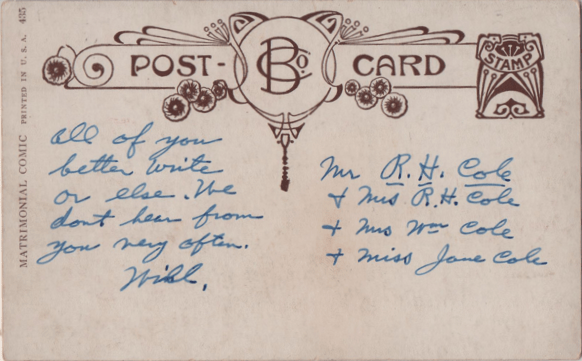 MATRIMONIAL COMIC PRINTED IN U. S. A. 435
POST-
B Co.
CARD
STAMP
all of you
better write
or else. We
dont hear from
you very often.
Will.
Mr R. H. Cole
+ Mrs R. H. Cole
+ Mrs Wm Cole
+ Miss Jane Cole